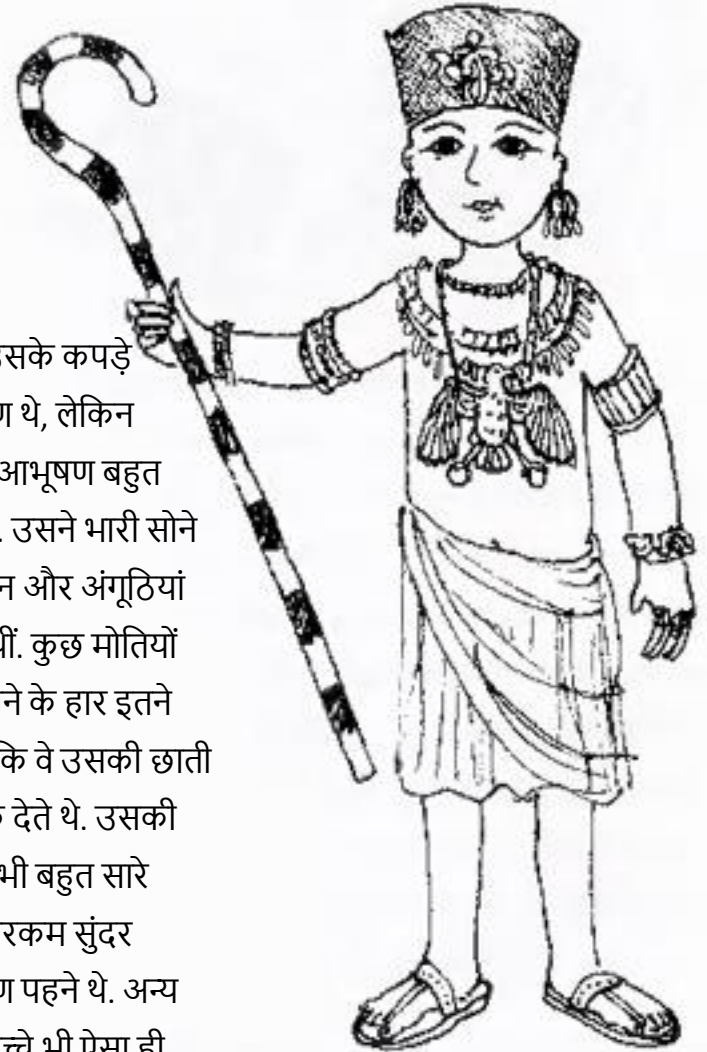 उसके कपड़े
थे, लेकिन
आभूषण बहुत
. उसने भारी सोने
और अंगूठियां
थीं. कुछ मोतियों
के हार इतने
कि वे उसकी छाती
देते थे. उसकी
भी बहुत सारे
सुंदर
पहने थे. अन्य
बच्चे भी ऐसा ही